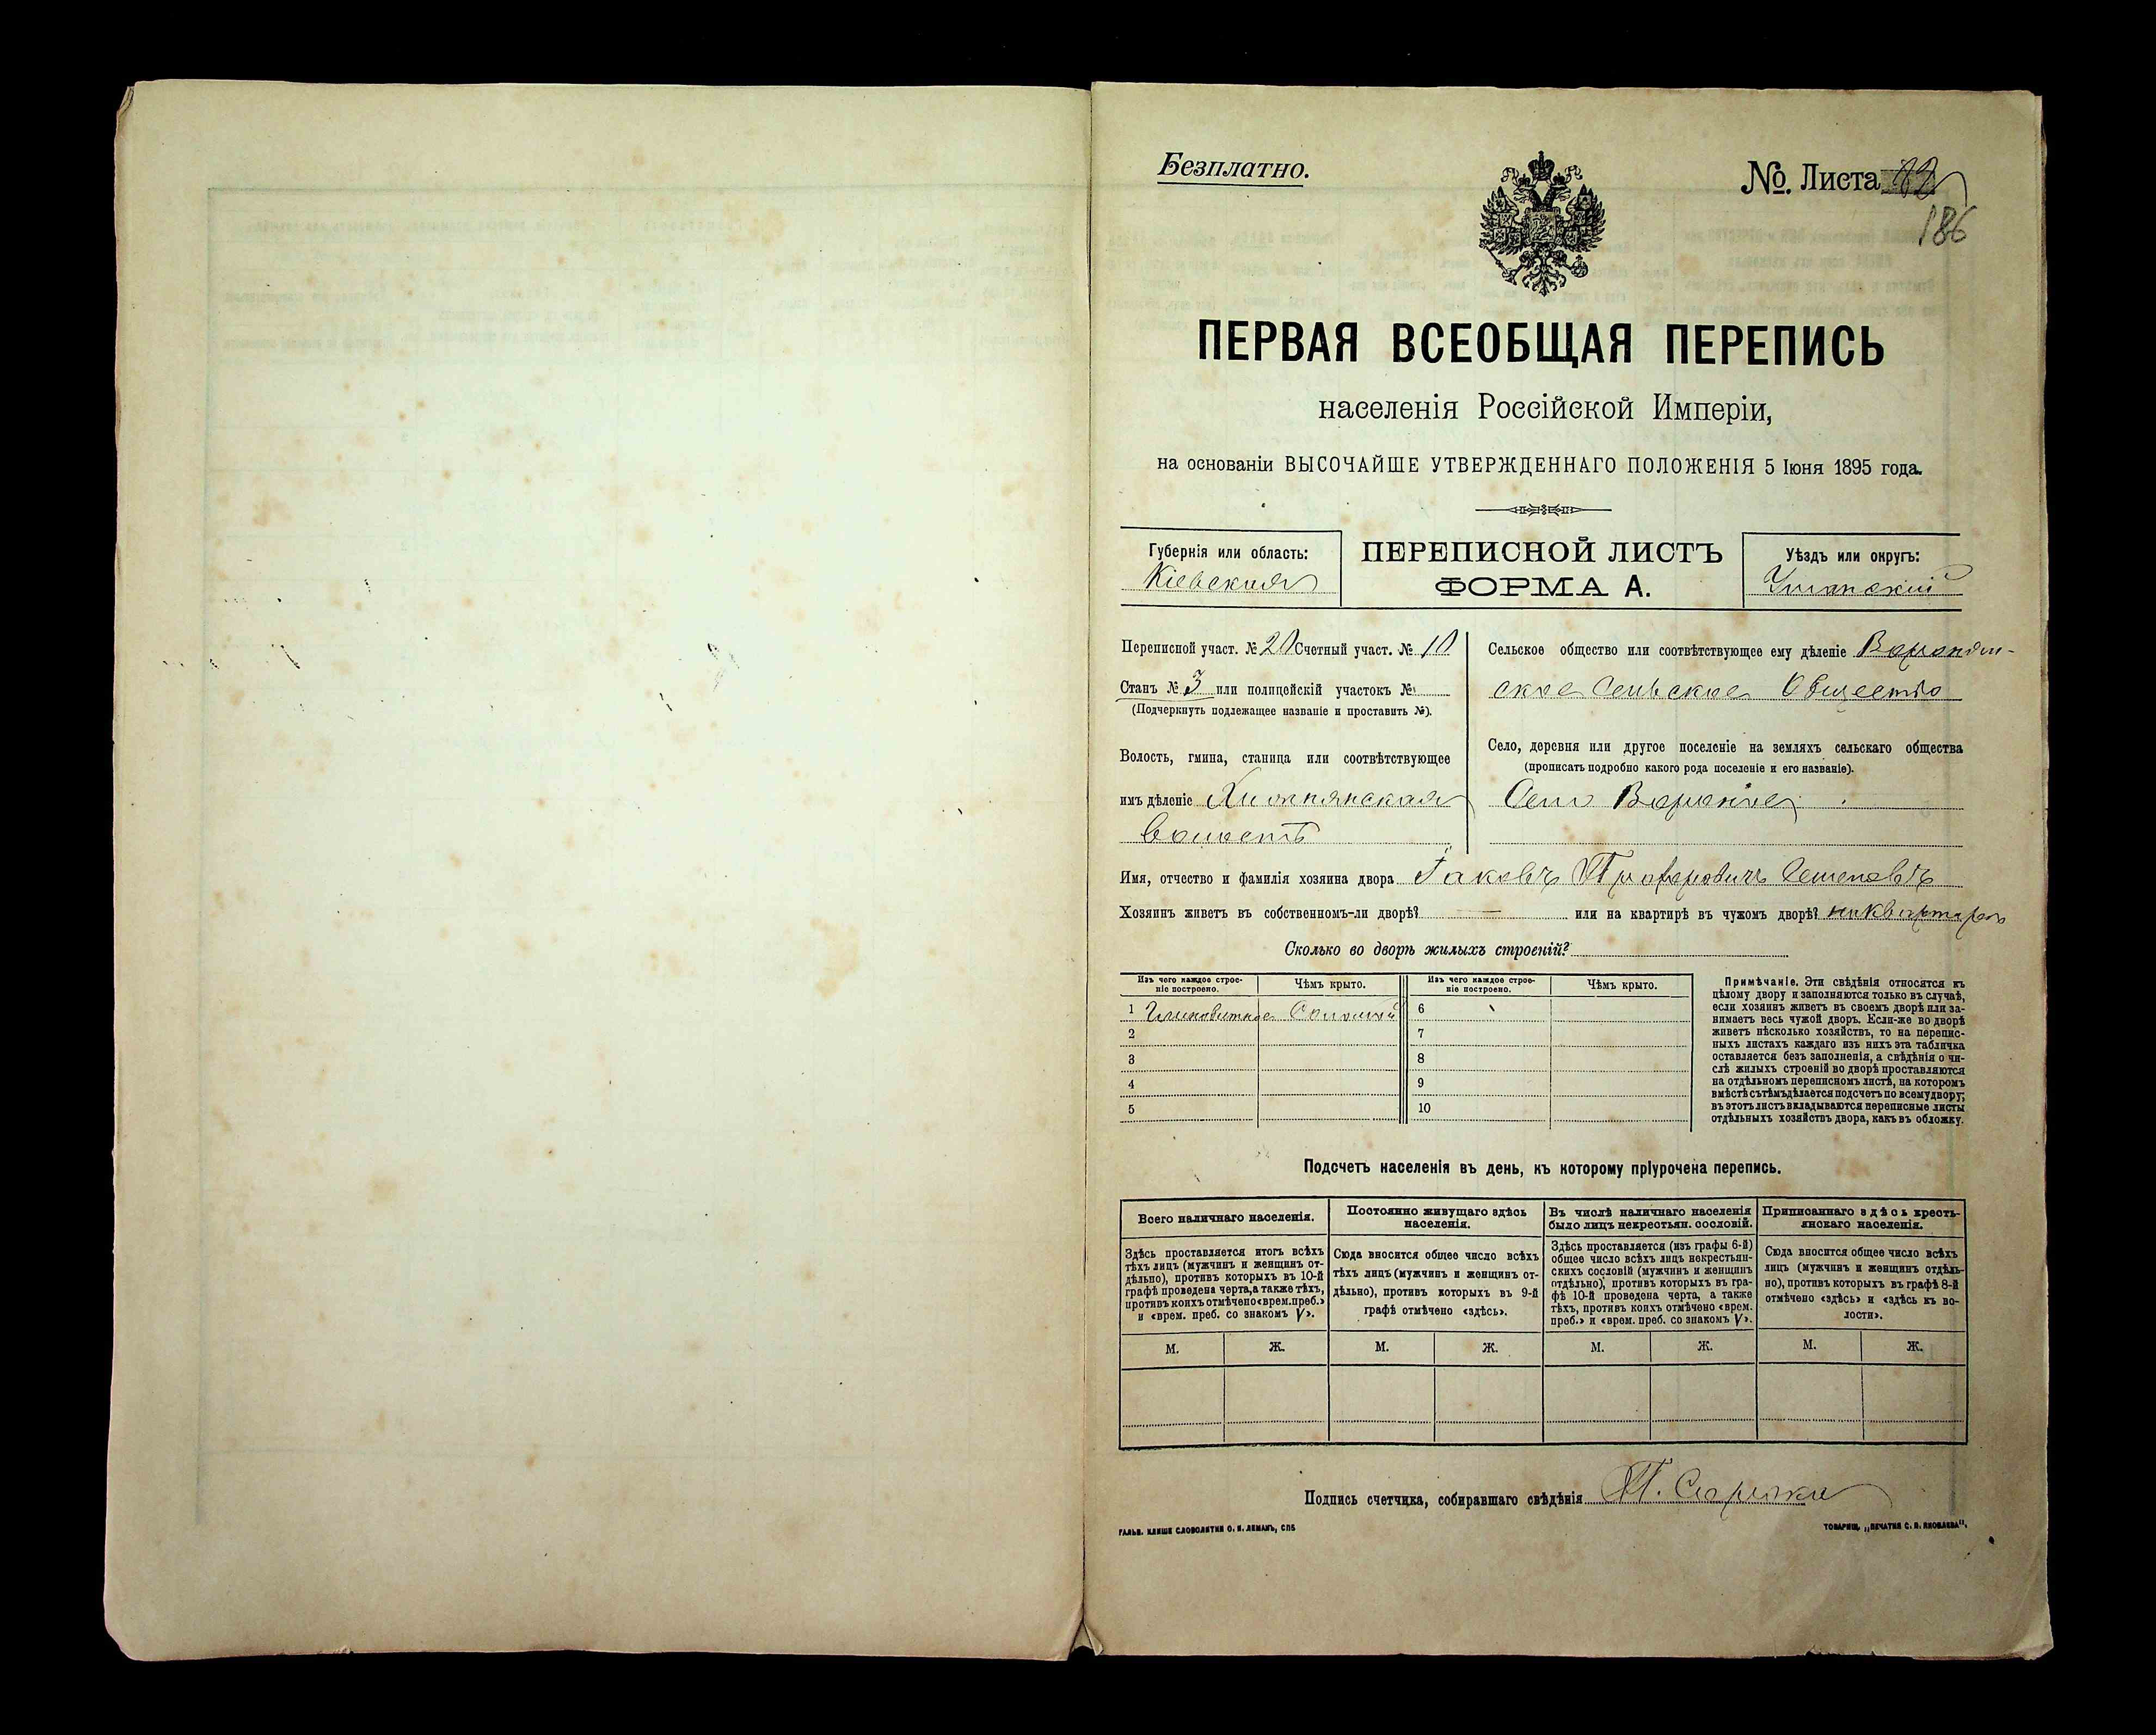 Безплатно.
№. Листа
186
ПЕРВАЯ ВСЕОБЩАЯ ПЕРЕПИСЬ
населенія Россійской Имперіи,
на основаніи ВЫСОЧАЙШЕ УТВЕРЖДЕННАГО ПОЛОЖЕНІЯ 5 Іюня 1895 года.
Губернія или область:
Кіевская
ПЕРЕПИСНОЙ ЛИСТЪ
ФОРМА А.
Уѣздъ или округъ:
Уманскій
Переписной участ. № 20 Счетный участ. № 10
Станъ № 3 или полицейскій участокъ №
(Подчеркнуть подлежащее названіе и проставить №).
Волость, гмина, станица или соотвѣтствующее
имъ дѣленіе
волость
Сельское общество или соотвѣтствующее ему дѣленіе
ское Сельское Общество
Село, деревня или другое поселеніе на земляхъ сельскаго общества
(прописать подробно какого рода поселеніе и его названіе).
Село
Имя, отчество и фамилія хозяина двора Іаковъ
Хозяинъ живетъ въ собственномъ-ли дворѣ? — или на квартирѣ въ чужомъ дворѣ?
Сколько во дворѣ жилыхъ строеній?
Изъ чего каждое строе-
ніе построено.
Чѣмъ крыто.
Изъ чего каждое строе-
ніе построено.
Чѣмъ крыто.
1 Соломой 6
2 7
3 8
4 9
5 10
Примѣчаніе. Эти свѣдѣнія относятся къ
цѣлому двору и заполняются только въ случаѣ,
если хозяинъ живетъ въ своемъ дворѣ или за-
нимаетъ весь чужой дворъ. Если-же во дворѣ
живетъ нѣсколько хозяйствъ, то на перепис-
ныхъ листахъ каждаго изъ нихъ эта табличка
оставляется безъ заполненія, а свѣдѣнія о чи-
слѣ жилыхъ строеній во дворѣ проставляются
на отдѣльномъ переписномъ листѣ, на которомъ
вмѣстѣ съ тѣмъ дѣлается подсчетъ по всему двору;
въ этотъ листъ вкладываются переписные листы
отдѣльныхъ хозяйствъ двора, какъ въ обложку.
Подсчетъ населенія въ день, къ которому пріурочена перепись.
Всего наличнаго населенія.
Здѣсь проставляется итогъ всѣхъ
тѣхъ лицъ (мужчинъ и женщинъ от-
дѣльно), противъ которыхъ въ 10-й
графѣ проведена черта, а также тѣхъ,
противъ коихъ отмѣчено «врем. преб.»
и «врем. преб. со знакомъ V».
Постоянно живущаго здѣсь
населенія.
Сюда вносится общее число всѣхъ
тѣхъ лицъ (мужчинъ и женщинъ от-
дѣльно), противъ которыхъ въ 9-й
графѣ отмѣчено «здѣсь».
Въ числѣ наличнаго населенія
было лицъ некрестьян. сословій.
Здѣсь проставляется (изъ графы 6-й)
общее число всѣхъ лицъ некрестьян-
скихъ сословій (мужчинъ и женщинъ
отдѣльно), противъ которыхъ въ гра-
фѣ 10-й проведена черта, а также
тѣхъ, противъ коихъ отмѣчено «врем.
преб.» и «врем. преб. со знакомъ V».
Приписаннаго здѣсь кресть-
янскаго населенія.
Сюда вносится общее число всѣхъ
лицъ (мужчинъ и женщинъ отдѣль-
но), противъ которыхъ въ графѣ 8-й
отмѣчено «здѣсь» и «здѣсь къ во-
лости».
М. Ж. М. Ж. М. Ж. М. Ж.
Подпись счетчика, собиравшаго свѣдѣнія
ГАЛЬВ. КЛИШЕ СЛОВОЛИТНИ О. И. ЛЕМАНЪ, СПБ
ТОВАРИЩ. „ПЕЧАТНЯ С. П. ЯКОВЛЕВА".